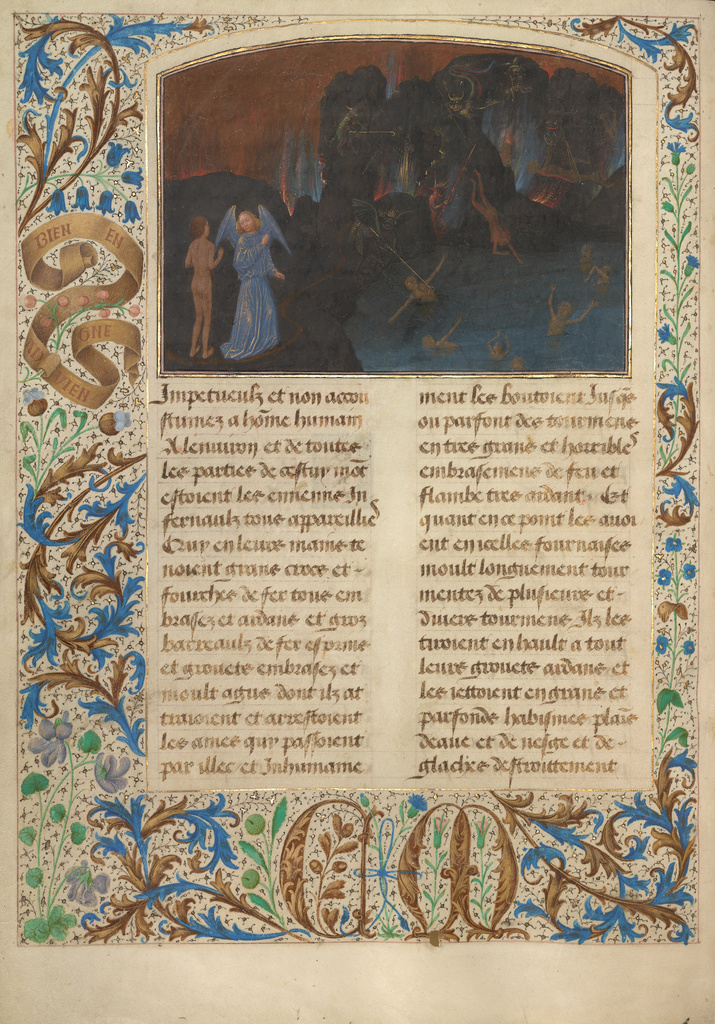 BIEN EN
AVIEN
GNE
CM
Impetueulz et non accou
stumez a hōme humain
A lenuiron et de toutes
les parties de cestuy mōt
estoient les ennemis In
fernaulz tous appareilliés
Quy en leurs mains te
noient grans crocs et
fourches de fer tous em
brasez et ardans et gros
barreaulz de fer esprins
et grouets embrasez et
moult agus dont ilz at
traioient et arrestoient
les ames quy passoient
par illec et Inhumaine
ment les boutoient Jusq̄s
ou parfont des tourmens
en tres grans et horribles
embrasemens de feu et
flambe tres ardant. Et
quant en ce point les auoi
ent en icelles fournaises
moult longuement tour
mentez de plusieurs et
diuers tourmens Ilz les
tiroient en hault a tout
leurs grouets ardans et
les iettoient en grans et
parfonds habismes plains
deaue et de neige et de
glaches destroittement